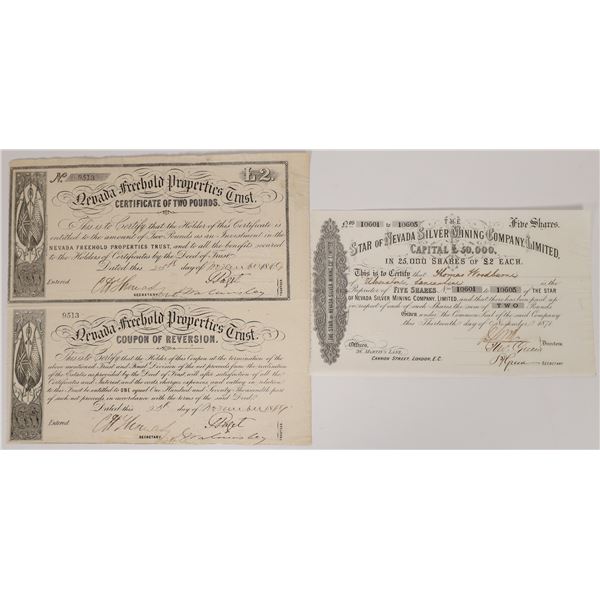 No 9513
£2.
Nevada Freehold Properties Trust.
CERTIFICATE OF TWO POUNDS.
This is to Certify that the Holder of this Certificate is
entitled to the amount of Two Pounds as an Investment in the
NEVADA FREEHOLD PROPERTIES TRUST, and to all the benefits secured
to the Holders of Certificates by the Deed of Trust.
Dated this day of
Entered
SECRETARY
TRUSTEES
9513
Nevada Freehold Properties Trust.
COUPON OF REVERSION.
This is to Certify that the Holder of this Coupon at the termination of the
above mentioned Trust and Final Division of the net proceeds from the realization
of the Estates as provided by the Deed of Trust will after satisfaction of all the
Certificates and Interest and the costs charges expenses and outlay in relation
to this Trust be entitled to ONE equal One Hundred and Seventy Thousandth part
of such net proceeds in accordance with the terms of the said Deed.
Dated this day of
Entered
SECRETARY
TRUSTEES
Nos 10601 to 10605
Five Shares.
THE
STAR OF NEVADA SILVER MINING COMPANY, LIMITED,
CAPITAL £50,000.
IN 25,000 SHARES OF £2 EACH.
This is to Certify that Thomas
of Lancashire is the
Proprietor of FIVE SHARES Nos 10601 to 10605 of THE STAR
OF NEVADA SILVER MINING COMPANY, LIMITED, and that there has been paid up
in respect of each of such Shares the sum of TWO Pounds
Given under the Common Seal of the said Company
this Thirteenth day of September 1871
Directors.
Offices,
34 MARTIN'S LANE,
CANNON STREET, LONDON, E.C.
SECRETARY